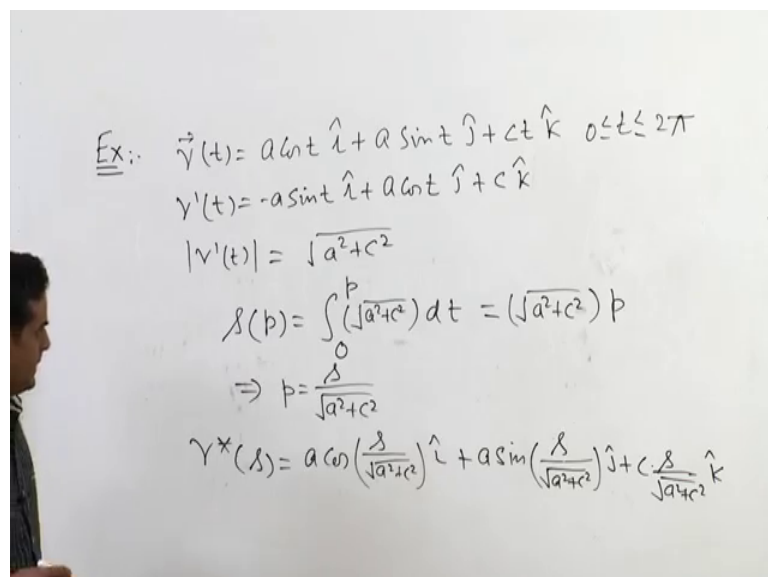 Ex:. r⃗(t)= a cos t î + a sin t ĵ + ct k̂ 0≤t≤2π
r'(t)= -a sin t î + a cos t ĵ + c k̂
|r'(t)| = √(a²+c²)
s(p)= ∫₀ᵖ (√(a²+c²)) dt = (√(a²+c²)) p
⇒ p= s/√(a²+c²)
r*(s)= a cos(s/√(a²+c²)) î + a sin(s/√(a²+c²)) ĵ + c·s/√(a²+c²) k̂